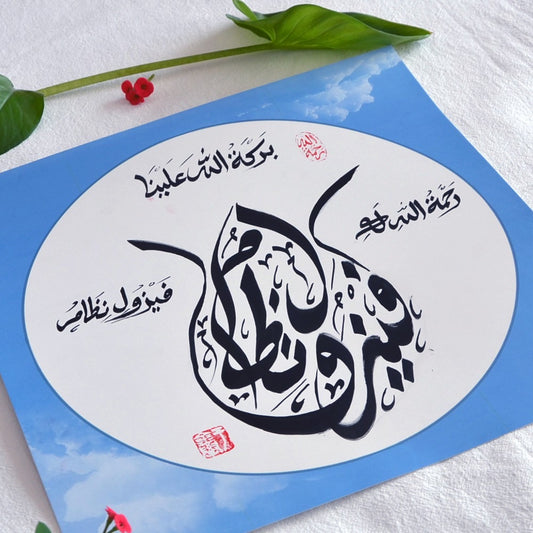 بَرَكَةُ اللّٰه عَلَيْنَا
رَحْمَةُ اللّٰه
فَيْزُول نِظَامُ
فيزول نظام